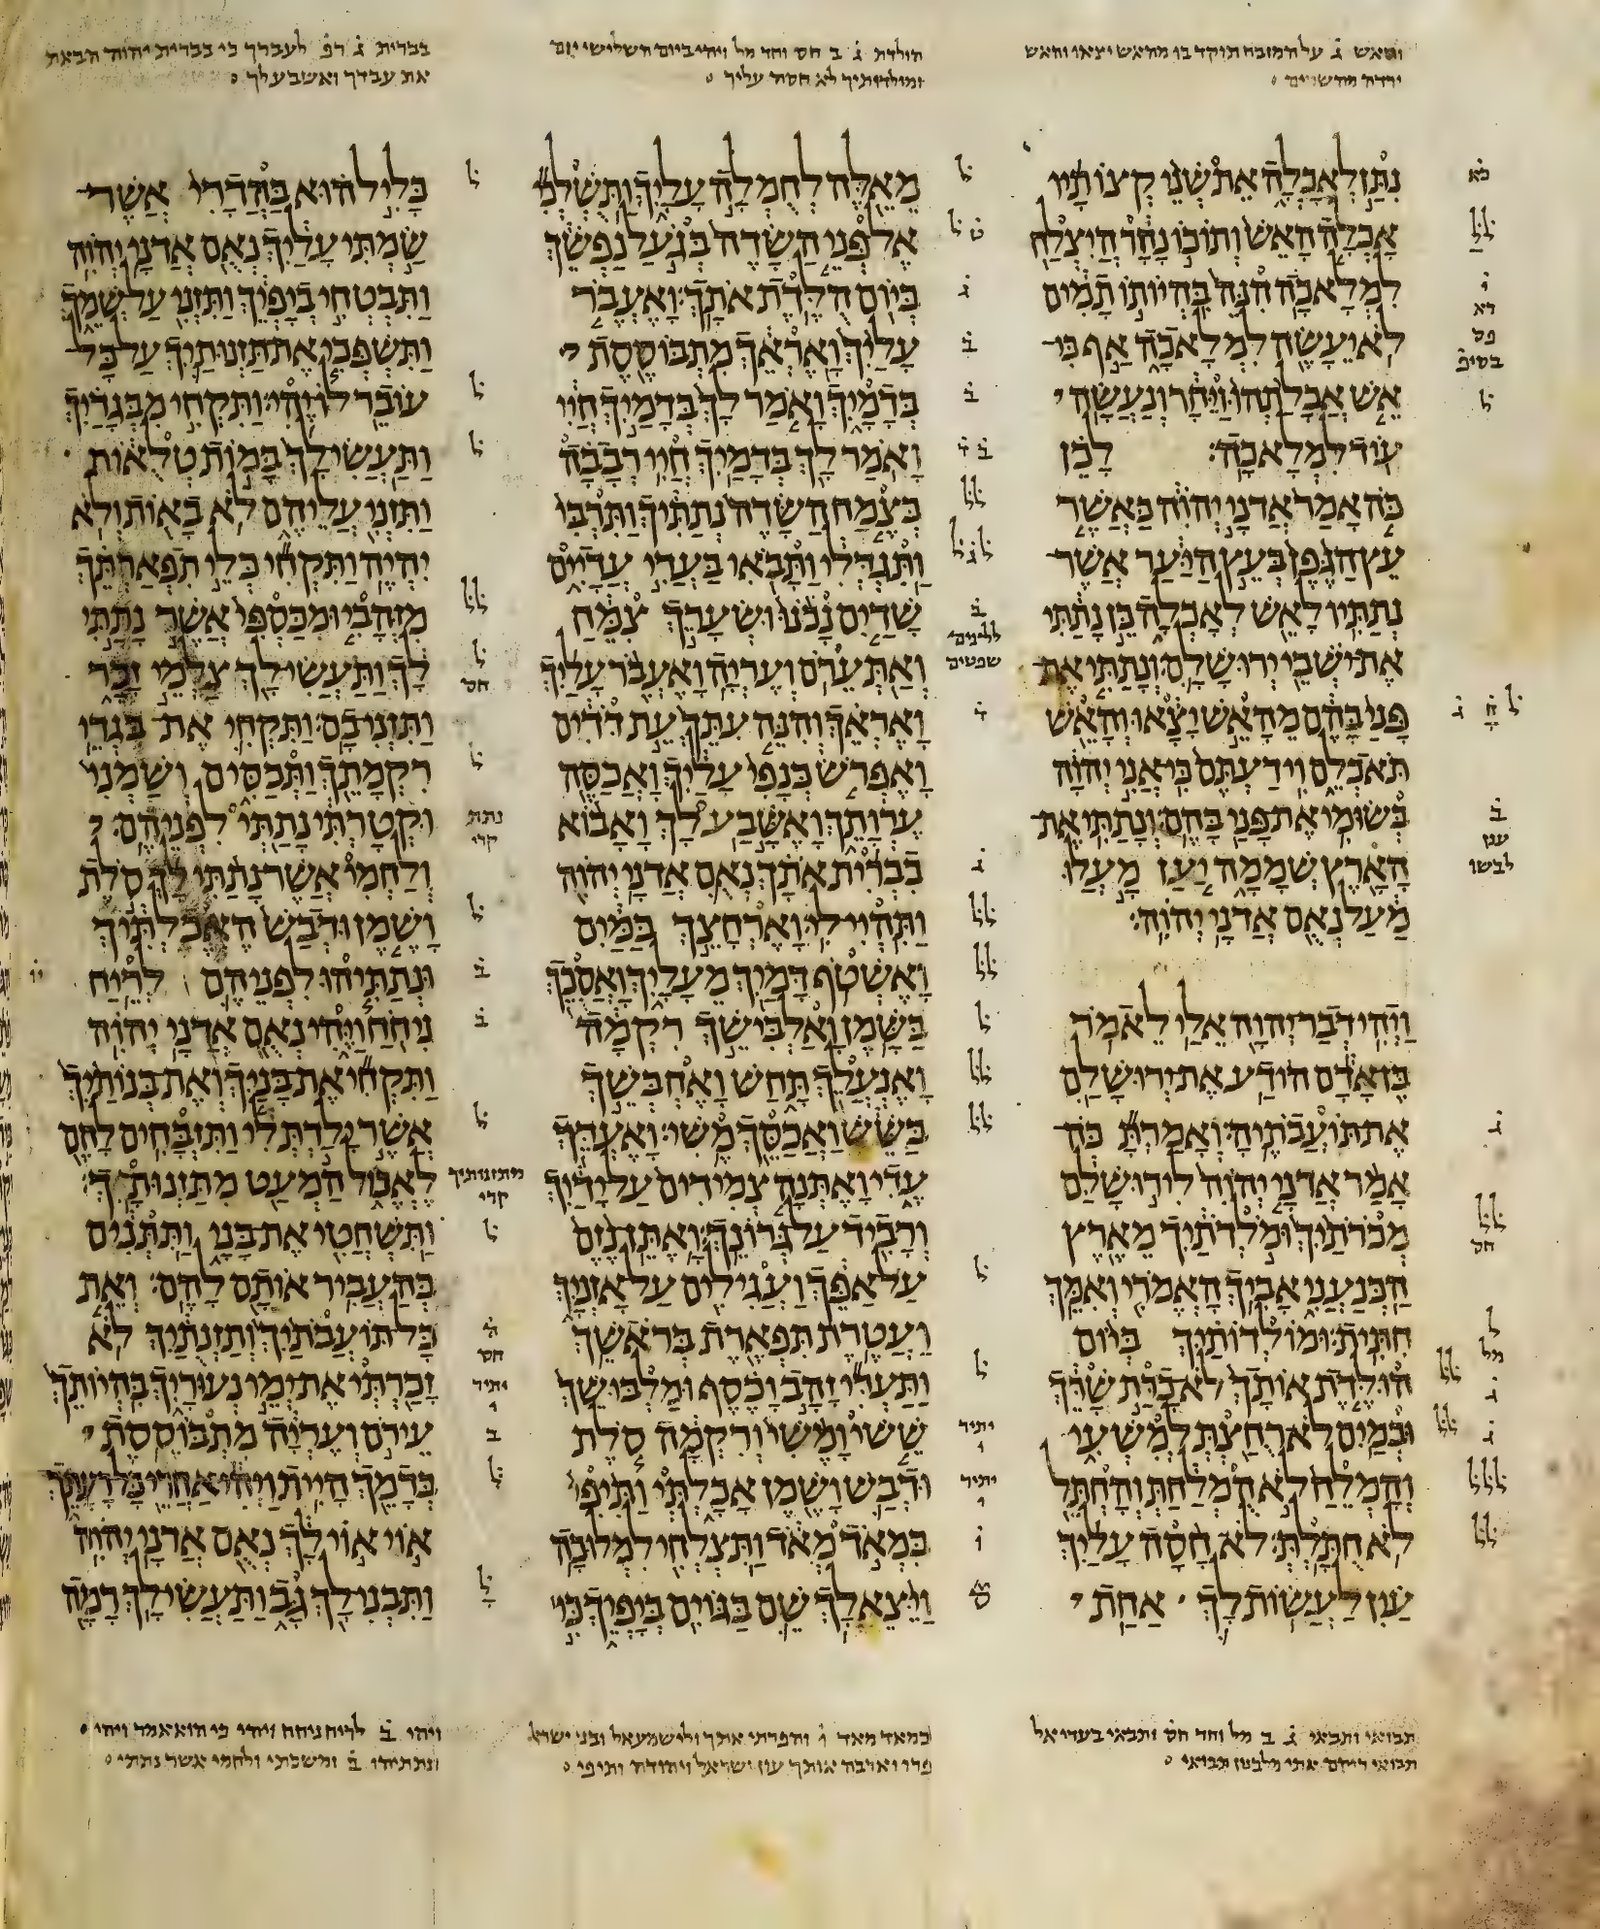 והאש ג̇ על המזבח תוקד בו מהאש יצאו והאש
ירדה מהשמים
נתן לאכלה את שני קצותיו
אכלה האש ותוכו נחר היצלח
למלאכה׃ הנה בהיותו תמים
לא יעשה למלאכה אף כי
אש אכלתהו ויחר ונעשה
עוד למלאכה׃ לכן
כה אמר אדני יהוה כאשר
עץ הגפן בעץ היער אשר
נתתיו לאש לאכלה כן נתתי
את ישבי ירושלם׃ ונתתי את
פני בהם מהאש יצאו והאש
תאכלם וידעתם כי אני יהוה
בשומי את פני בהם׃ ונתתי את
הארץ שממה יען מעלו
מעל נאם אדני יהוה׃
ויהי דבר יהוה אלי לאמר׃
בן אדם הודע את ירושלם
את תועבתיה׃ ואמרת כה
אמר אדני יהוה לירושלם
מכרתיך ומלדתיך מארץ
הכנעני אביך האמרי ואמך
חתית׃ ומולדותיך ביום
הולדת אותך לא כרת שרך
ובמים לא רחצת למשעי
והמלח לא המלחת והחתל
לא חתלת׃ לא חסה עליך
עין לעשות לך אחת
תבואי ותבאי ג̇ ב מל וחד חס ותבאי בעדי אל
הולדת ג̇ ב חס וחד מל ויהי ביום השלישי יום
ומולדותיך לא חסה עליך
מאלה לחמלה עליך ותשלכי
אל פני השדה בגעל נפשך
ביום הלדת אתך׃ ואעבר
עליך ואראך מתבוססת
בדמיך ואמר לך בדמיך חיי
ואמר לך בדמיך חיי׃ רבבה
כצמח השדה נתתיך ותרבי
ותגדלי ותבאי בעדי עדיים
שדים נכנו ושערך צמח
ואת ערם ועריה׃ ואעבר עליך
ואראך והנה עתך עת דדים
ואפרש כנפי עליך ואכסה
ערותך ואשבע לך ואבוא
בברית אתך נאם אדני יהוה
ותהיי לי׃ וארחצך במים
ואשטף דמיך מעליך ואסכך
בשמן׃ ואלבישך רקמה
ואנעלך תחש ואחבשך
בשש ואכסך משי׃ ואעדך
עדי ואתנה צמידים על ידיך
ורביד על גרונך׃ ואתן נזם
על אפך ועגילים על אזניך
ועטרת תפארת בראשך׃
ותעדי זהב וכסף ומלבושך
ששי ומשי ורקמה סלת
ודבש ושמן אכלתי ותיפי
במאד מאד ותצלחי למלוכה׃
ויצא לך שם בגוים ביפיך כי
במאד מאד ו והפרתי אתך ולישמעאל ובני ישראל
פרו וארבה אותך עון ישראל ויהודה ותיפי
בברית ג̇ רפ̇ לעברך כי בברית יהוה הבאת
את עבדך ואשבע לך
כליל הוא בהדרי אשר
שמתי עליך נאם אדני יהוה׃
ותבטחי ביפיך ותזני על שמך
ותשפכי את תזנותיך על כל
עובר לו יהי׃ ותקחי מבגדיך
ותעשי לך במות טלאות
ותזני עליהם לא באות ולא
יהיה׃ ותקחי כלי תפארתך
מזהבי ומכספי אשר נתתי
לך ותעשי לך צלמי זכר
ותזני בם׃ ותקחי את בגדי
רקמתך ותכסים ושמני
וקטרתי נתתי לפניהם׃
ולחמי אשר נתתי לך סלת
ושמן ודבש האכלתיך
ונתתיהו לפניהם לריח
ניחח ויהי נאם אדני יהוה׃
ותקחי את בניך ואת בנותיך
אשר ילדת לי ותזבחים להם
לאכול המעט מתזנותך׃
ותשחטי את בני ותתנים
בהעביר אותם להם׃ ואת
כל תועבתיך ותזנתיך לא
זכרתי את ימי נעוריך בהיותך
עירם ועריה מתבוססת
בדמך היית׃ ויהי אחרי כל רעתך
אוי אוי לך נאם אדני יהוה׃
ותבני לך גב ותעשי לך רמה
ויהי ב̇ לריח ניחח ויהי כי הוא אמר ויהי
ונתתיהו ב̇ ומשכתי ולחמי אשר נתתי